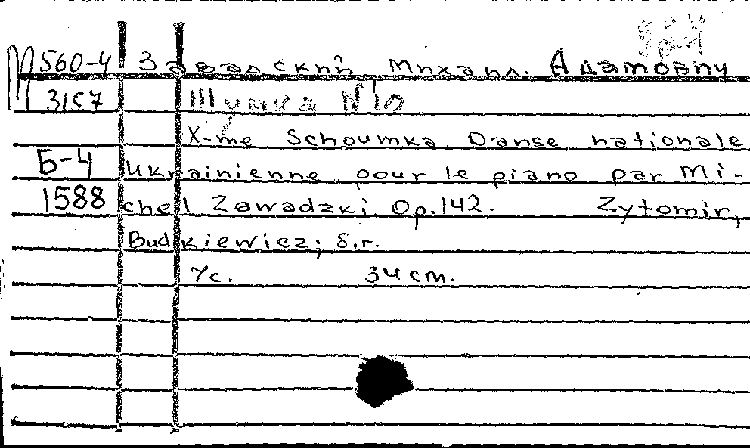 М 560-4 Завадский Михаил Адамович
3157 Шумка N 10
X-me Schoumka Danse nationale
Б-4 ukrainienne pour le piano par Mi-
1588 chel Zawadzki, Op. 142. Zytomir,
Budkiewicz, s.r.
7с. 34 cm.